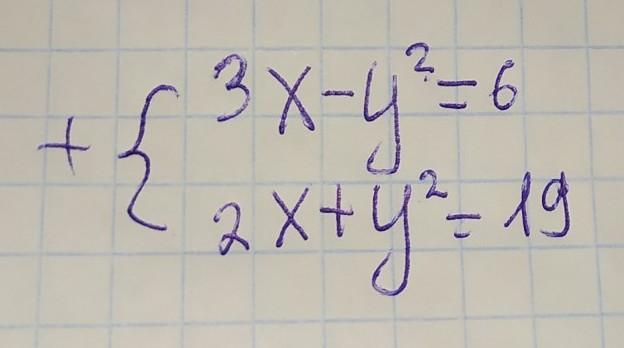 + { 3x-y²=6
2x+y²=19